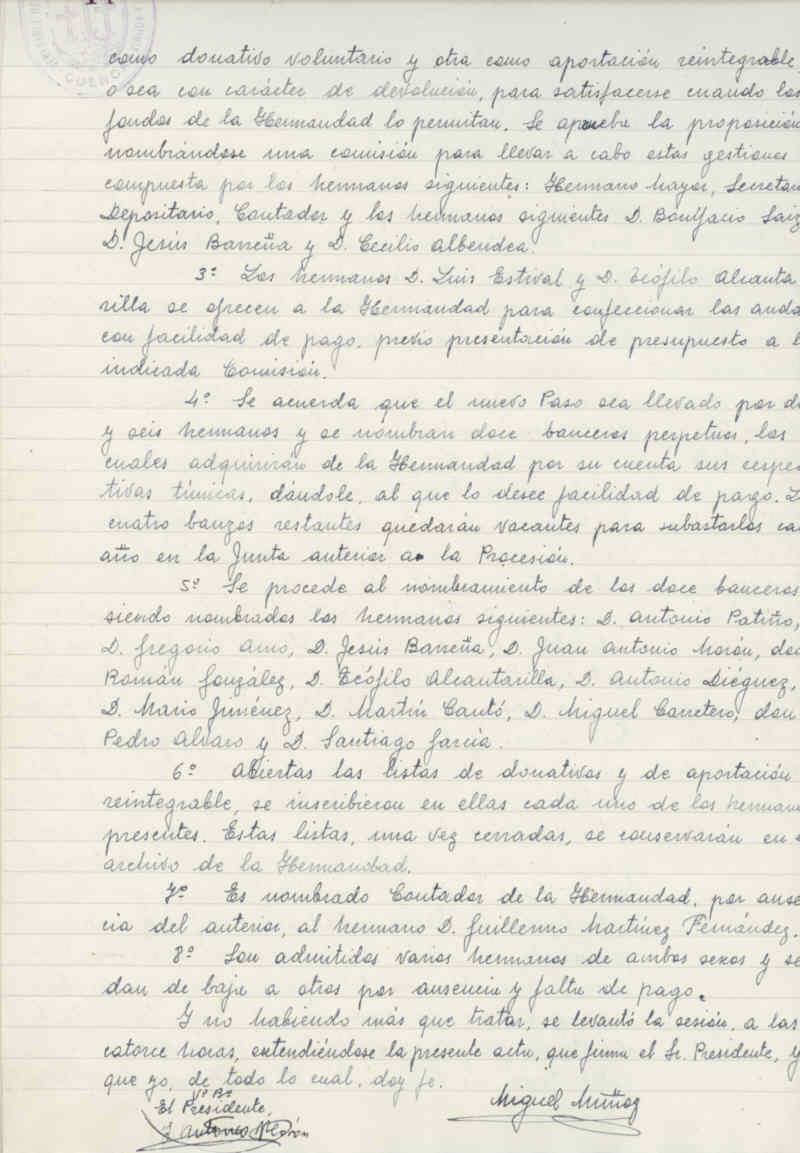 como donativo voluntario y otra como aportación reintegrable
o sea con carácter de devolución, para satisfacerse cuando los
fondos de la Hermandad lo permitan. Se aprueba la proposición
nombrándose una comisión para llevar a cabo estas gestiones
compuesta por los hermanos siguientes: Hermano Mayor, Secretar
Depositario, Contador y los hermanos siguientes D. Bonifacio Saiz
D. Jesús Barreña y D. Cecilio Albendea.
3º Los hermanos D. Luis Estival y D. Teófilo Alcanta
rilla se ofrecen a la Hermandad para confeccionar las anda
con facilidad de pago, previo presentación de presupuesto a l
indicada Comisión.
4º Se acuerda que el nuevo Paso sea llevado por di
y seis hermanos y se nombran doce banceros perpetuos, los
cuales adquirirán de la Hermandad por su cuenta sus respec
tivas túnicas, dándole, al que lo desee facilidad de pago. L
cuatro banzos restantes quedarán vacantes para subastarlos ca
año en la Junta anterior a la Procesión.
5º Se procede al nombramiento de los doce banceros
siendo nombrados los hermanos siguientes: D. Antonio Patiño,
D. Gregorio Amo, D. Jesús Barreña, D. Juan Antonio Morón, do
Román González, D. Teófilo Alcantarilla, D. Antonio Diéguez,
D. Mario Jiménez, D. Martín Cantó, D. Miguel Carretero, don
Pedro Alvaro y D. Santiago García.
6º Abiertas las listas de donativos y de aportación
reintegrable, se inscribieron en ellas cada uno de los hermano
presentes. Estas listas, una vez cerradas, se conservarán en e
archivo de la Hermandad.
7º Es nombrado Contador de la Hermandad, por ause
cia del anterior, al hermano D. Guillermo Martínez Fernández.
8º Son admitidos varios hermanos de ambos sexos y se
dan de baja a otros por ausencia y falta de pago.
Y no habiendo más que tratar, se levantó la sesión, a las
catorce horas, extendiéndose la presente acta, que firma el Sr. Presidente, y
que yo, de todo lo cual, doy fe.
Vº Bº
El Presidente,
Miguel Muñoz